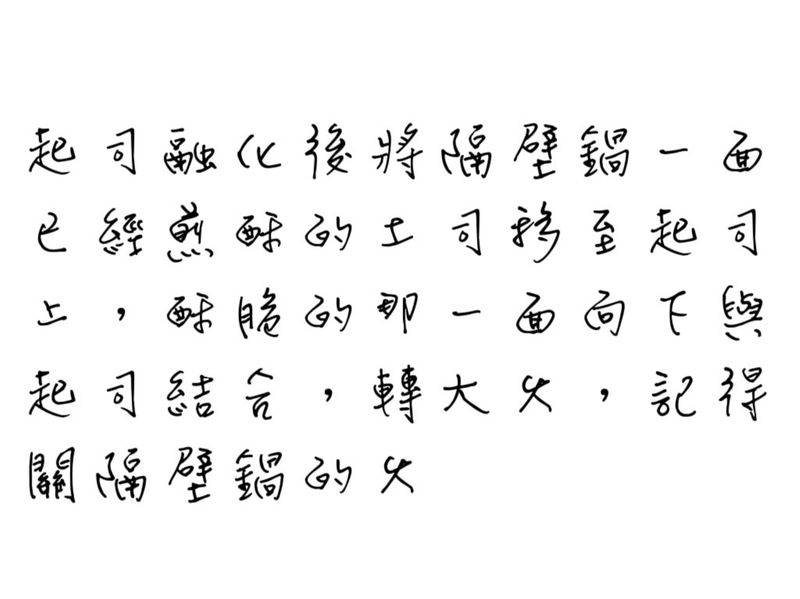 起司融化後將隔壁鍋一面
已經煎酥的土司移至起司
上，酥脆的那一面向下與
起司結合，轉大火，記得
關隔壁鍋的火